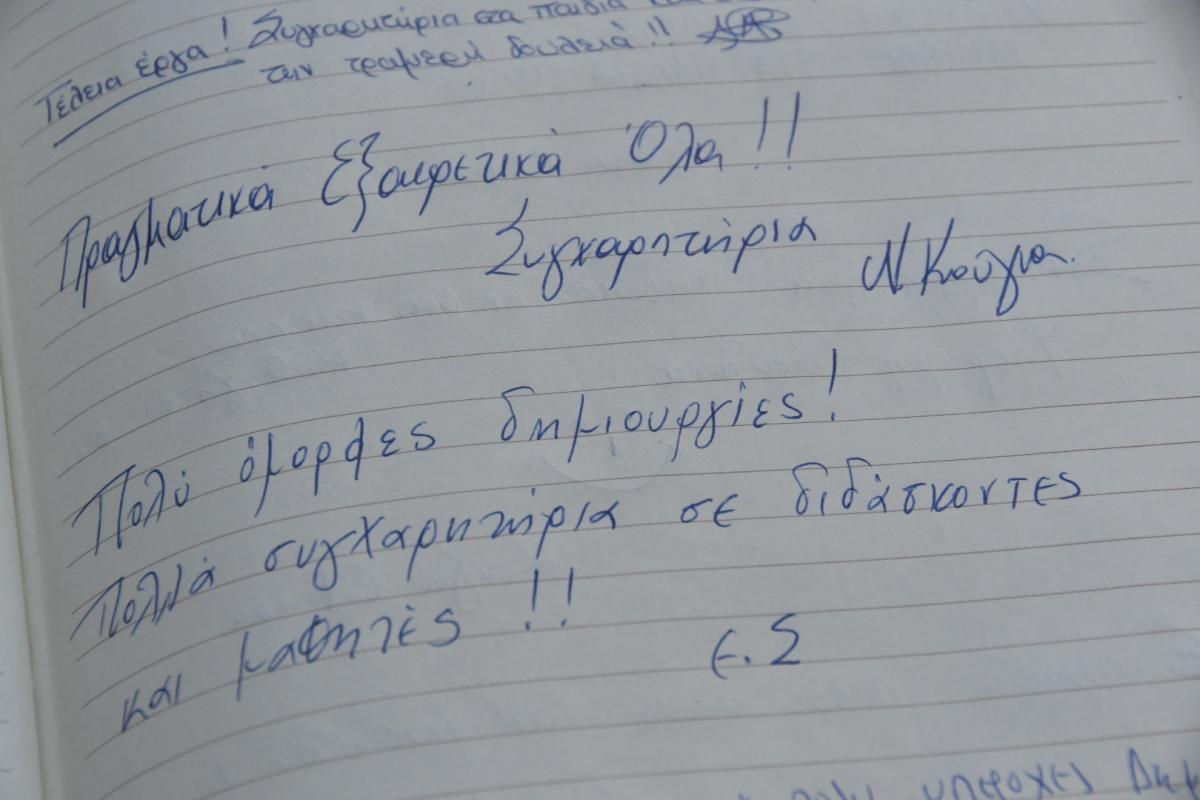 Τέλεια έργα! Συγχαρητήρια στα παιδιά
την τρομερή δουλειά!!
Πραγματικά Εξαιρετικά Όλα!!
Συγχαρητήρια Ν Κούγια.
Πολύ όμορφες δημιουργίες!
Πολλά συγχαρητήρια σε διδάσκοντες
και μαθητές!! Ε. Σ
πολύ υπέροχες